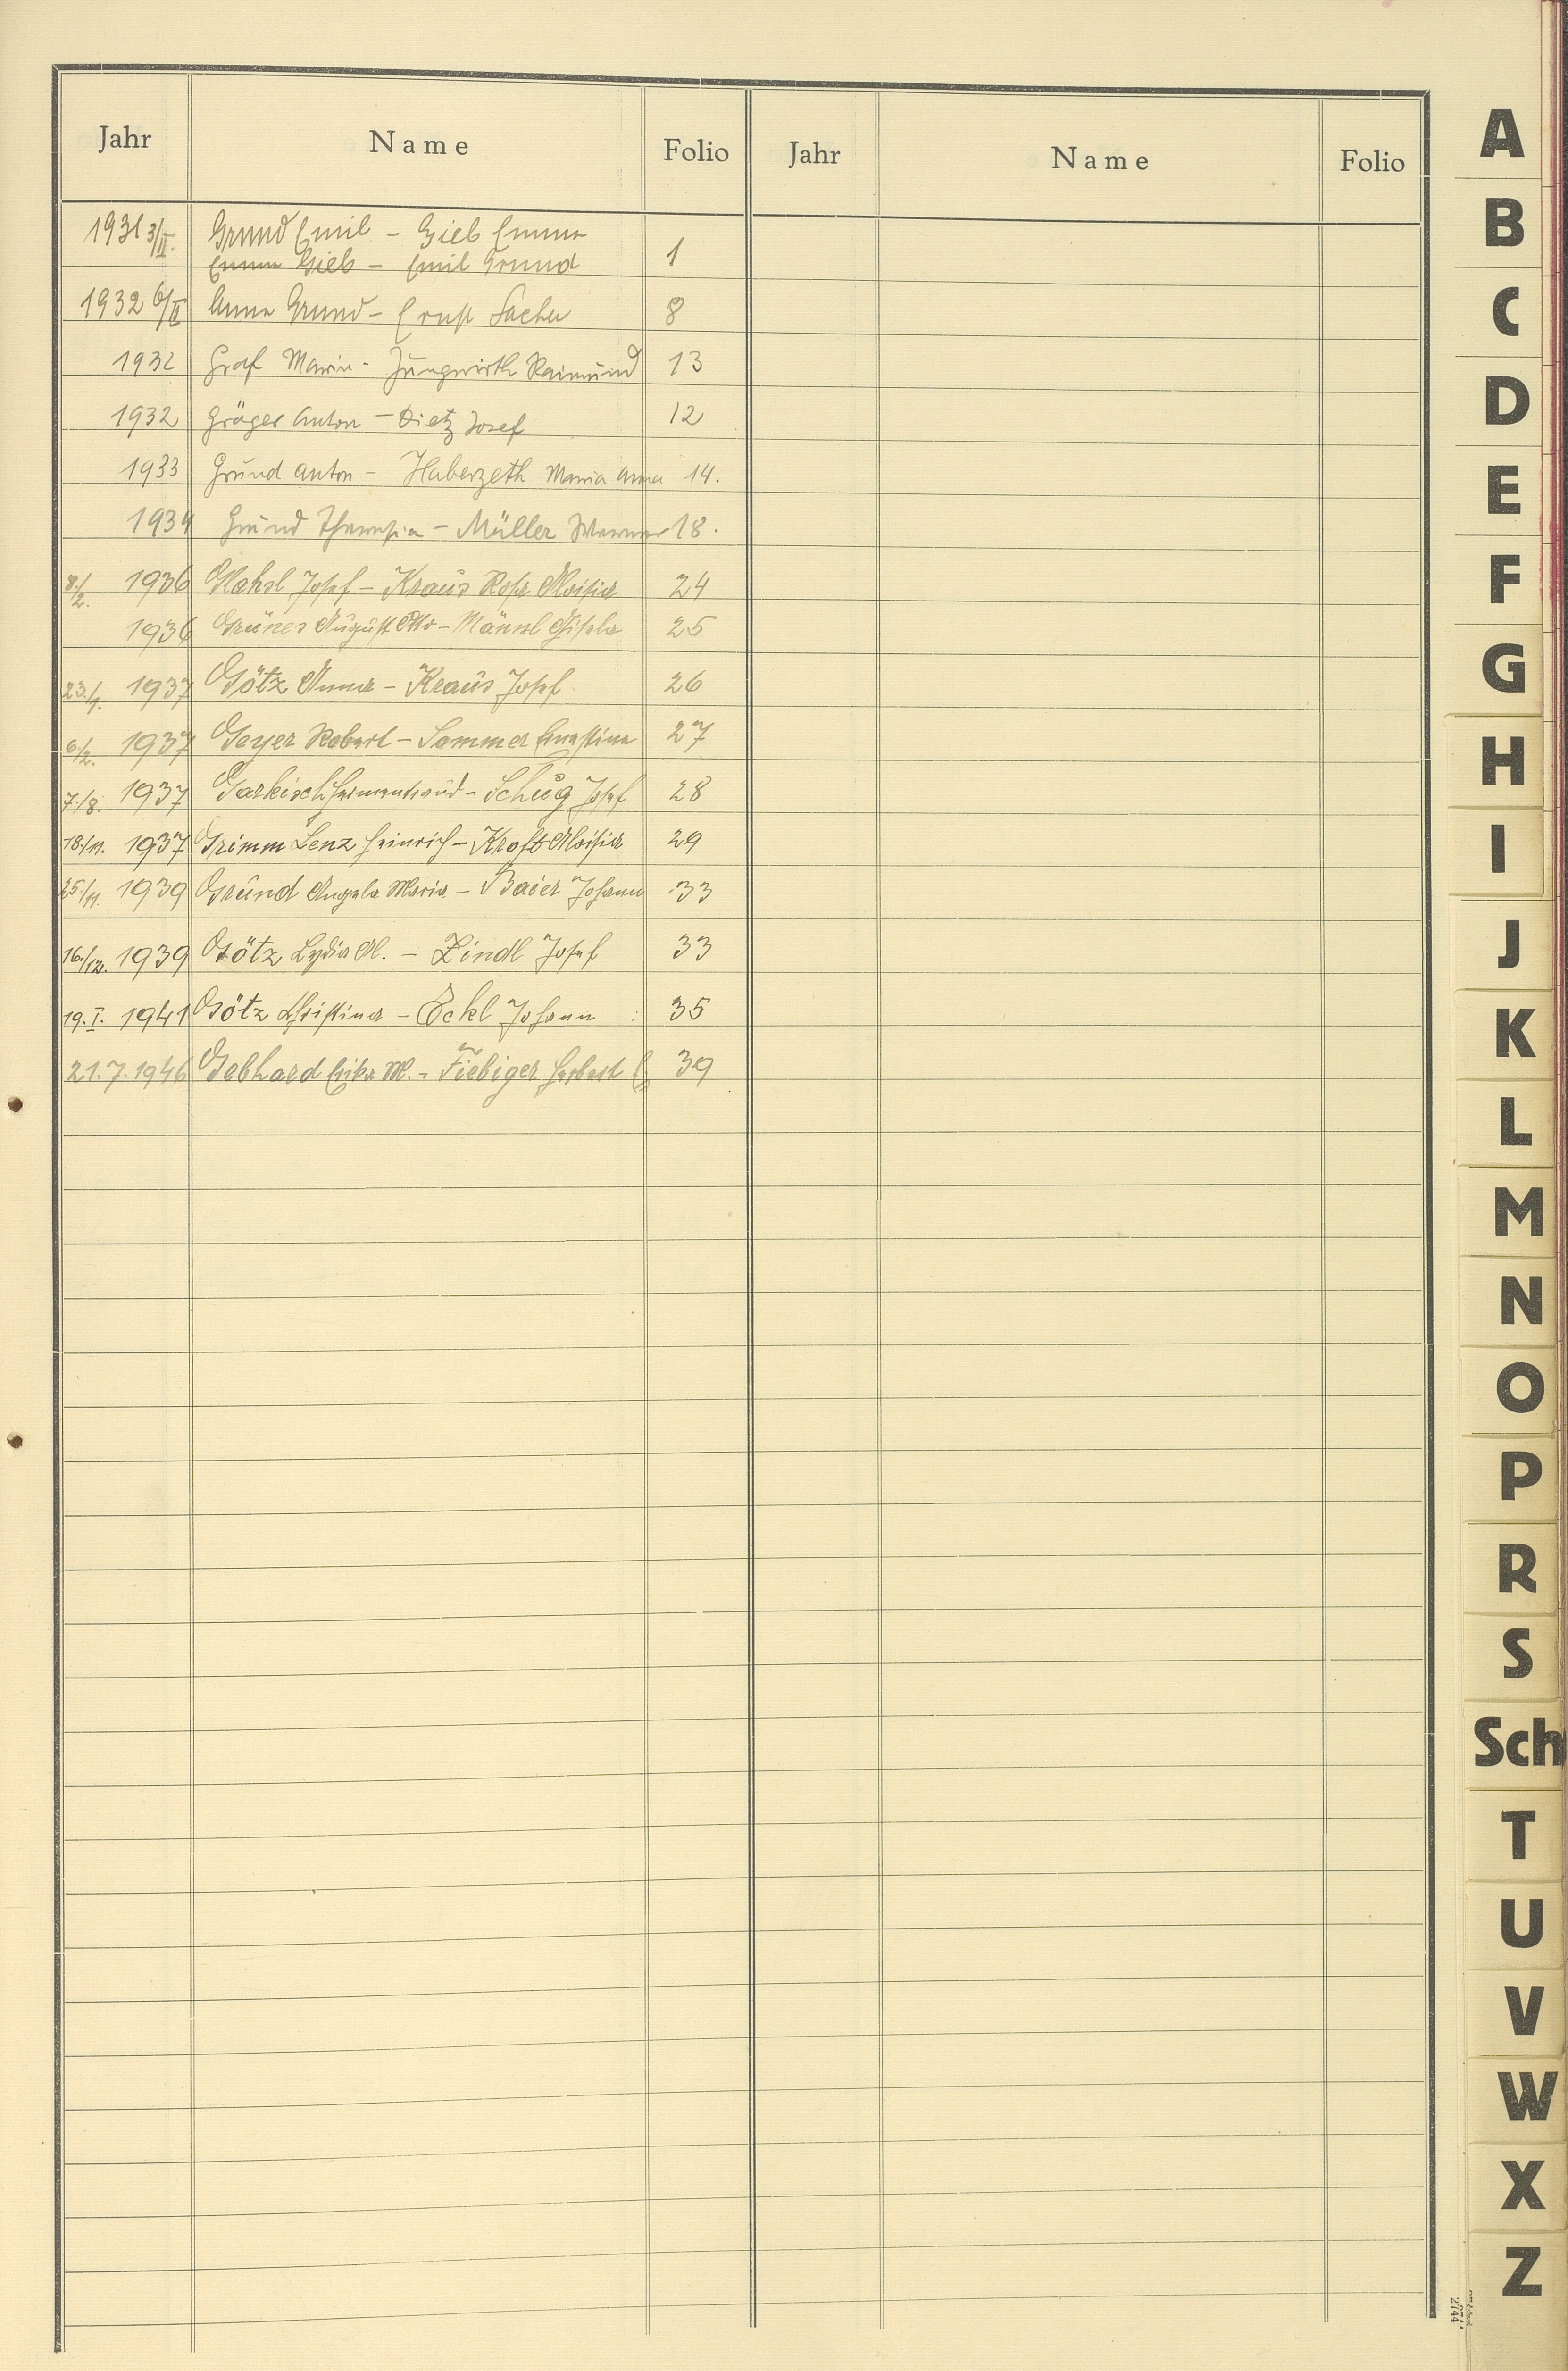 Jahr Name Folio Jahr Name Folio
1931 3/II. Grund Emil - Gieb Emma
Emma Gieb - Emil Grund 1
1932 6/II Anna Grund - Ernst Sacher 8
1932 Graf Marie - Jungwirth Raimund 13
1932 Gräger Anton - Dietz Josef 12
1933 Grund Anton - Haberzeth Maria Anna 14.
1934 Grund Theresia - Müller Werner 18.
8./2. 1936 Josef - Kraus Rosa Aloisia 24
1936 Grüner August Otto - Männl Gisela 25
23./1. 1937 Götz Anna - Kraus Josef 26
6./2. 1937 Geyer Robert - Sommer Ernestine 27
7./8. 1937 Garkisch - Schug Josef 28
18./11. 1937 Grimm Lenz Heinrich - Kroft Aloisia 29
25./11. 1939 Grund Angela Maria - Baier Johann 33
16./12. 1939 Götz Lydia A. - Zindl Josef 33
19. I. 1941 Götz Christina - Eckl Johann 35
21.7.1946 Gebhard Erika M. - Fiebiger Herbert E. 39
A
B
C
D
E
F
G
H
I
J
K
L
M
N
O
P
R
S
Sch
T
U
V
W
X
Z
2744